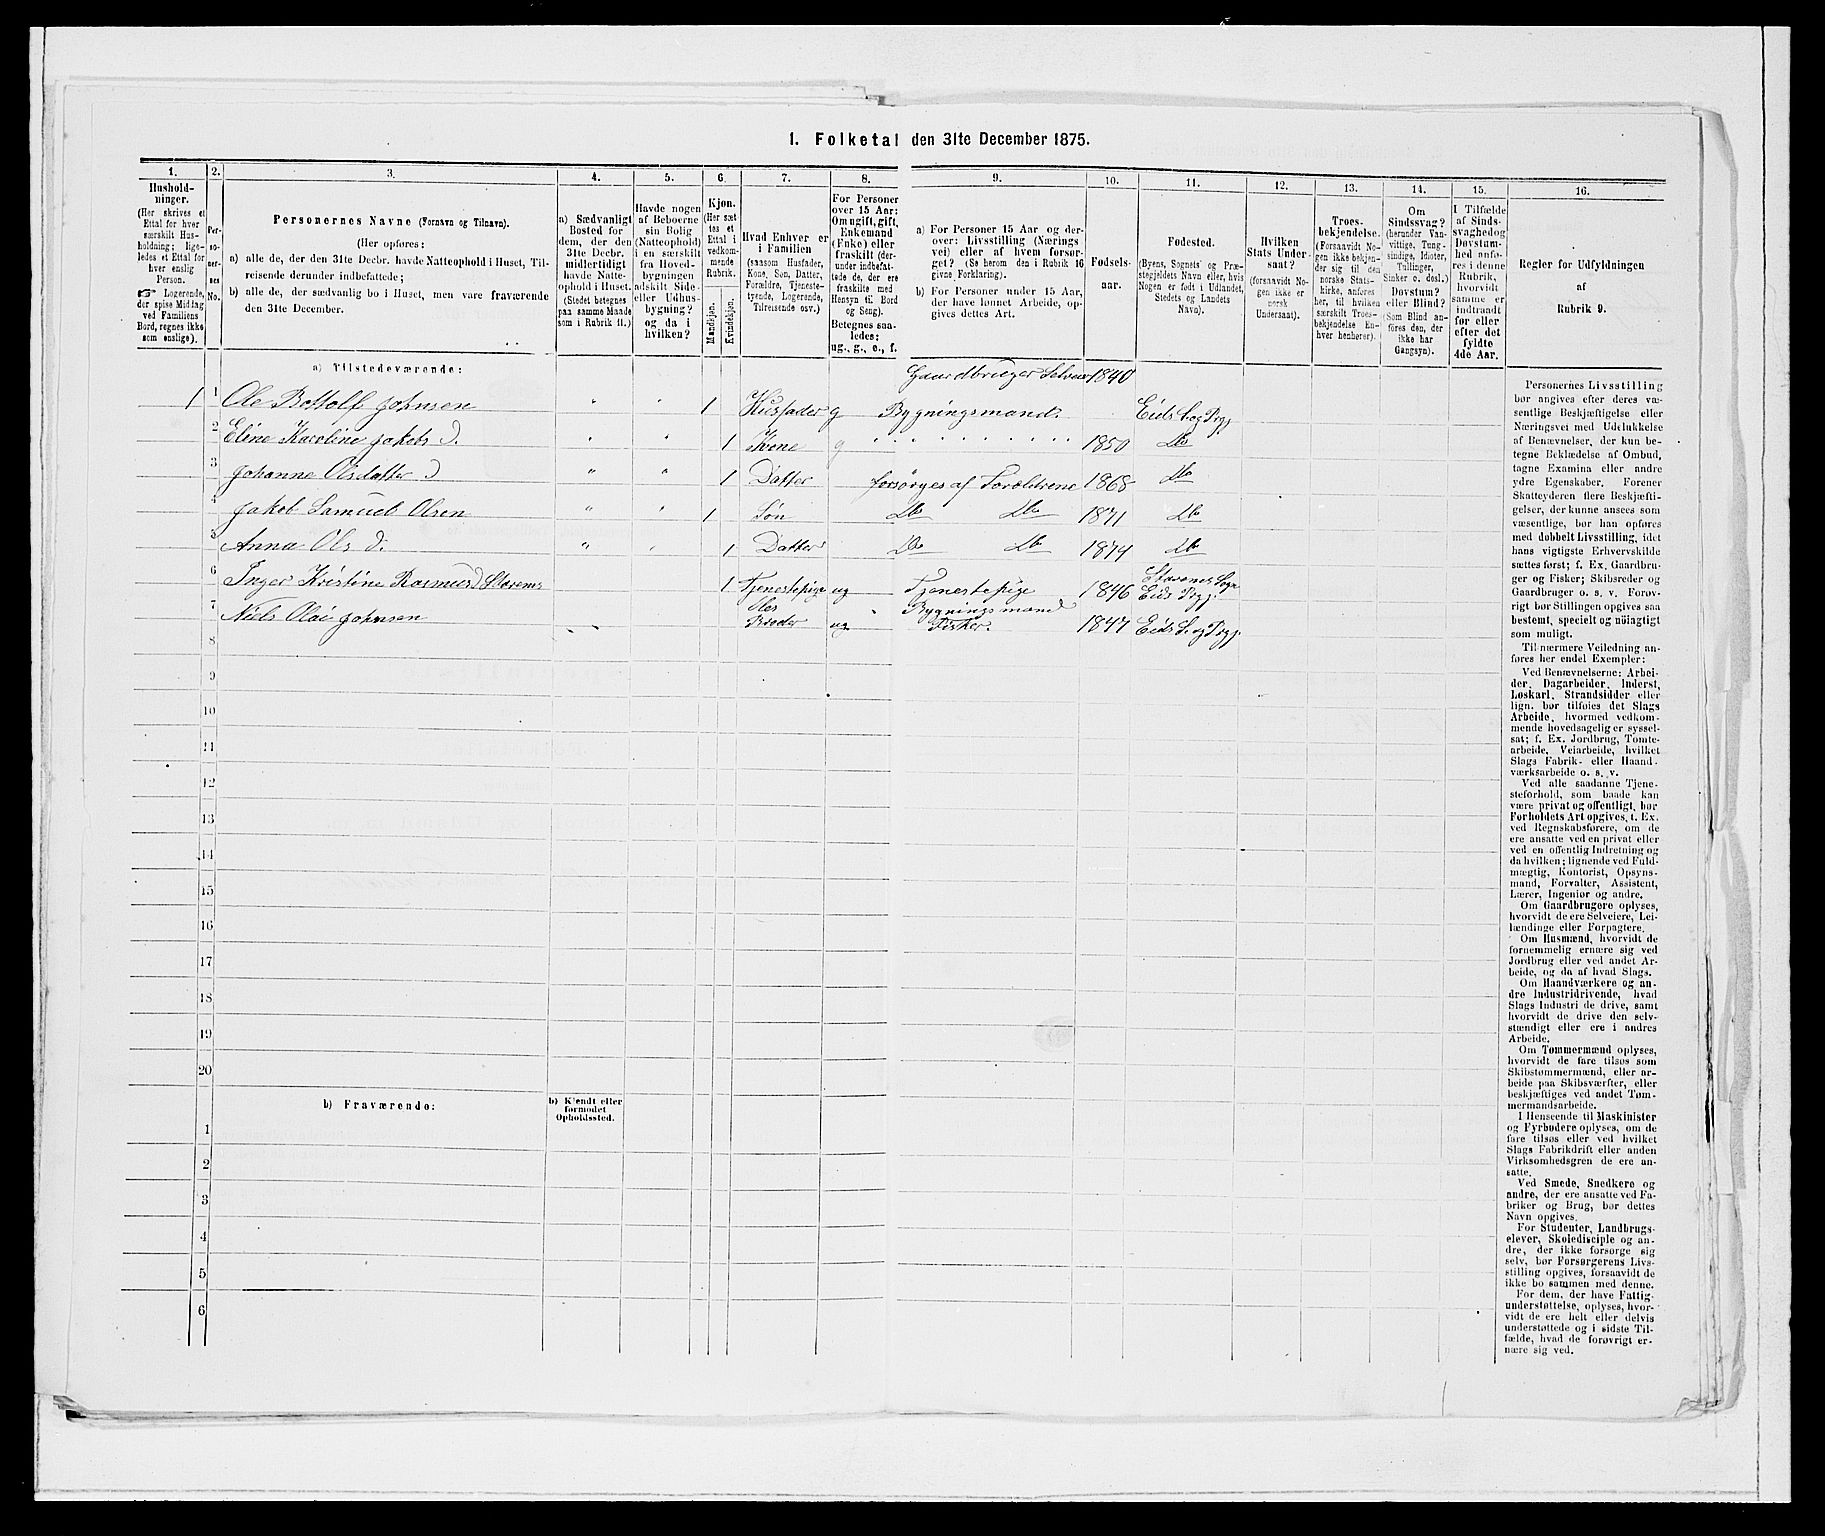 1. Folketal den 31te December 1875.
1.
2.
3.
4.
5.
6.
7.
8.
9.
10.
11.
12.
13.
14.
15.
16.
Hushold-
ninger.
(Her skrives et
Ettal for hver
særskilt Hus-
holdning; lige-
ledes et Ettal for
hver enslig
Person.
☞ Logerende,
der spise Middag
ved Familiens
Bord, regnes ikke
som enslige).
Per-
so-
ner-
nes
No.
Personernes Navne (Fornavn og Tilnavn).
(Her opføres:
a) alle de, der den 31te Decbr. havde Natteophold i Huset, Til-
reisende derunder indbefattede;
b) alle de, der sædvanlig bo i Huset, men vare fraværende
den 31te December.
a) Sædvanligt
Bosted for
dem, der den
31te Decbr.
midlertidigt
havde Natte-
ophold i Huset.
(Stedet betegnes
paa samme Maade
som i Rubrik 11.)
Havde nogen
af Beboerne
sin Bolig
(Natteophold)
i en særskilt
fra Hoved-
bygningen
adskilt Side-
eller Udhus-
bygning?
og da i
hvilken?
Kjøn.
(Her sæt-
tes et
Ettal i
vedkom-
mende
Rubrik.
Mandkjøn.
Kvindekjøn.
Hvad Enhver er
i Familien
(saasom Husfader,
Kone, Søn, Datter,
Forældre, Tjeneste-
tyende, Logerende,
Tilreisende osv.)
For Personer
over 15 Aar:
Om ugift, gift,
Enkemand
(Enke) eller
fraskilt (der-
under indbefat-
tede de, der ere
fraskilte med
Hensyn til Bord
og Seng).
Betegnes saa-
ledes:
ug., g., e., f.
a) For Personer 15 Aar og der-
over: Livsstilling (Nærings
vei) eller af hvem forsør-
get? (Se herom den i Rubrik 16
givne Forklaring).
b) For Personer under 15 Aar,
der have lønnet Arbeide, op-
gives dettes Art.
Fødsels-
aar.
Fødested.
(Byens, Sognets og Præ-
stegjeldets Navn eller, hvis
Nogen er født i Udlandet,
Stedets og Landets
Navn).
Hvilken
Stats Under-
saat?
(forsaavidt No-
gen ikke er
norsk
Undersaat).
Troes-
bekjendelse.
(Forsaavidt No-
gen ikke bekjen-
der sig til den
norske Stats-
kirke, anføres
her, til hvilken
særskilt Troes-
bekjendelse En-
hver henhører).
Om
Sindssvag?
(herunder Van-
vittige, Tung-
sindige, Idioter,
Tullinger,
Sinker o. desl.)
Døvstum?
eller Blind?
(Som Blind an-
føres den, der
ikke har
Gangsyn).
I Tilfælde
af Sinds-
svaghed og
Døvstum-
hed anfø-
res i denne
Rubrik,
hvorvidt
samme er
indtraadt
før eller
efter det
fyldte
4de Aar.
Regler for Udfyldningen
af
Rubrik 9.
a) Tilstedeværende:
Gaardbruger Selveier 1840
1 1 Ole Bottolf Johnsen " " 1 Husfader g Bygningsmand. Eids S og Prgj.
2 Eline Karoline Jakobs D. " " 1 Kone g " 1850 Do
3 Johanne Olsdatter D " " 1 Datter forsørges af Forældrene 1868 Do
4 Jakob Samuel Olsen " " 1 Søn Do Do 1871 Do
5 Anna Ols D. " " 1 Datter Do Do 1874 Do
6 Inger Kristine Rasmus D 1 Tjenestepige ug Tjenestepige 1846 Eids Prgj.
7 Niels Olai Johnsen Broder ug Bygningsmand Fisker. 1847 Eids S. og Prgj.
8
9
10
11
12
13
14
15
16
17
18
19
20
b) Fraværende:
b) Kjendt eller
formodet
Opholdssted.
1
2
3
4
5
6
Personernes Livsstilling
bør angives efter deres væ-
sentlige Beskjæftigelse eller
Næringsvei med Udelukkelse
af Benævnelser, der kun be-
tegne Beklædelse af Ombud,
tagne Examina eller andre
ydre Egenskaber. Forener
Skatteyderen flere Beskjæfti-
gelser, der kunne ansees som
væsentlige, bør han opføres
med dobbelt Livsstilling, idet
hans vigtigste Erhvervskilde
sættes først; f. Ex. Gaardbru-
ger og Fisker; Skibsreder og
Gaardbruger o. s. v. Forøv-
rigt bør Stillingen opgives saa
bestemt, specielt og nöiagtigt
som muligt.
Til nærmere Veiledning an-
føres her endel Exempler:
Ved Benævnelserne: Arbei-
der, Dagarbeider, Inderst,
Løskarl, Strandsidder eller
lign. bør tilføies det Slags
Arbeide, hvormed vedkom-
mende hovedsagelig er syssel-
sat; f. Ex. Jordbrug, Tomte-
arbeide, Veiarbeide, hvilket
Slags Fabrik- eller Haand-
værksarbeide o. s. v.
Ved alle saadanne Tjene-
steforhold, som baade kan
være privat og offentligt, bør
Forholdets Art opgives, t. Ex.
ved Regnskabsførere, om de
ere ansatte ved en privat eller
ved en offentlig Indretning og
da hvilken; lignende ved Fuld-
mægtig, Kontorist, Opsyns-
mand, Forvalter, Assistent,
Lærer, Ingeniør og andre.
Om Gaardbrugere oplyses,
hvorvidt de ere Selveiere, Lei-
lændinge eller Forpagtere.
Om Husmænd, hvorvidt de
fornemmelig ernære sig ved
Jordbrug eller ved andet Ar-
beide, og da af hvad Slags.
Om Haandværkere og an-
dre Industridrivende, hvad
Slags Industri de drive, samt
hvorvidt de drive den selv-
stændigt eller ere i andres
Arbeide.
Om Tømmermænd oplyses,
hvorvidt de fare tilsøs som
Skibstømmermænd, eller ar-
beide paa Skibsværfter, eller
beskjæftiges ved andet Tøm-
mermandsarbeide.
I Henseende til Maskinister
og Fyrbødere oplyses, om de
fare tilsøs eller ved hvilket
Slags Fabrikdrift eller anden
Virksomhedsgren de ere an-
satte.
Ved Smede, Snedkere og
andre, der ere ansatte ved Fa-
briker og Brug, bør dettes
Navn opgives.
For Studenter, Landbrugs-
elever, Skoledisciple og an-
dre, der ikke forsørge sig
selv, bør Forsørgerens Livs-
stilling opgives, forsaavidt de
ikke bo sammen med denne.
For dem, der have Fattig-
understøttelse, oplyses, hvor-
vidt de ere helt eller delvis
understøttede og i sidste Til-
fælde, hvad de forøvrigt er-
nære sig ved.